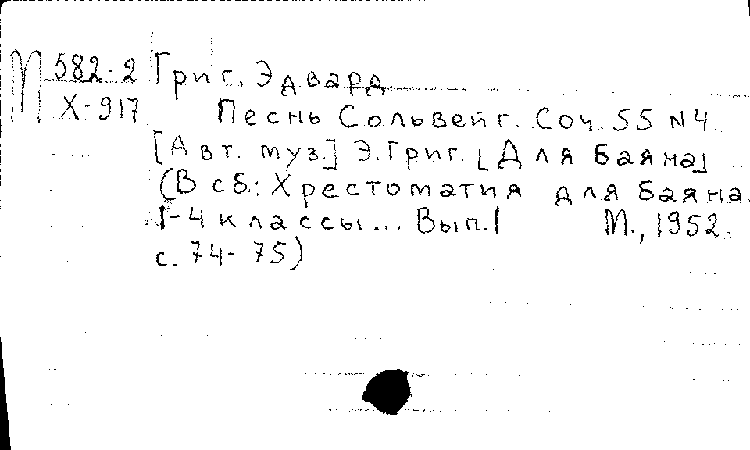 М 582-2 Григ. Эдвард
Х-917 Песнь Сольвейг. Соч. 55 N4
[Авт. муз.] Э. Григ. [Для баяна]
(В сб.: Хрестоматия для баяна.
1-4 классы... Вып. 1 М., 1952.
с. 74-75)